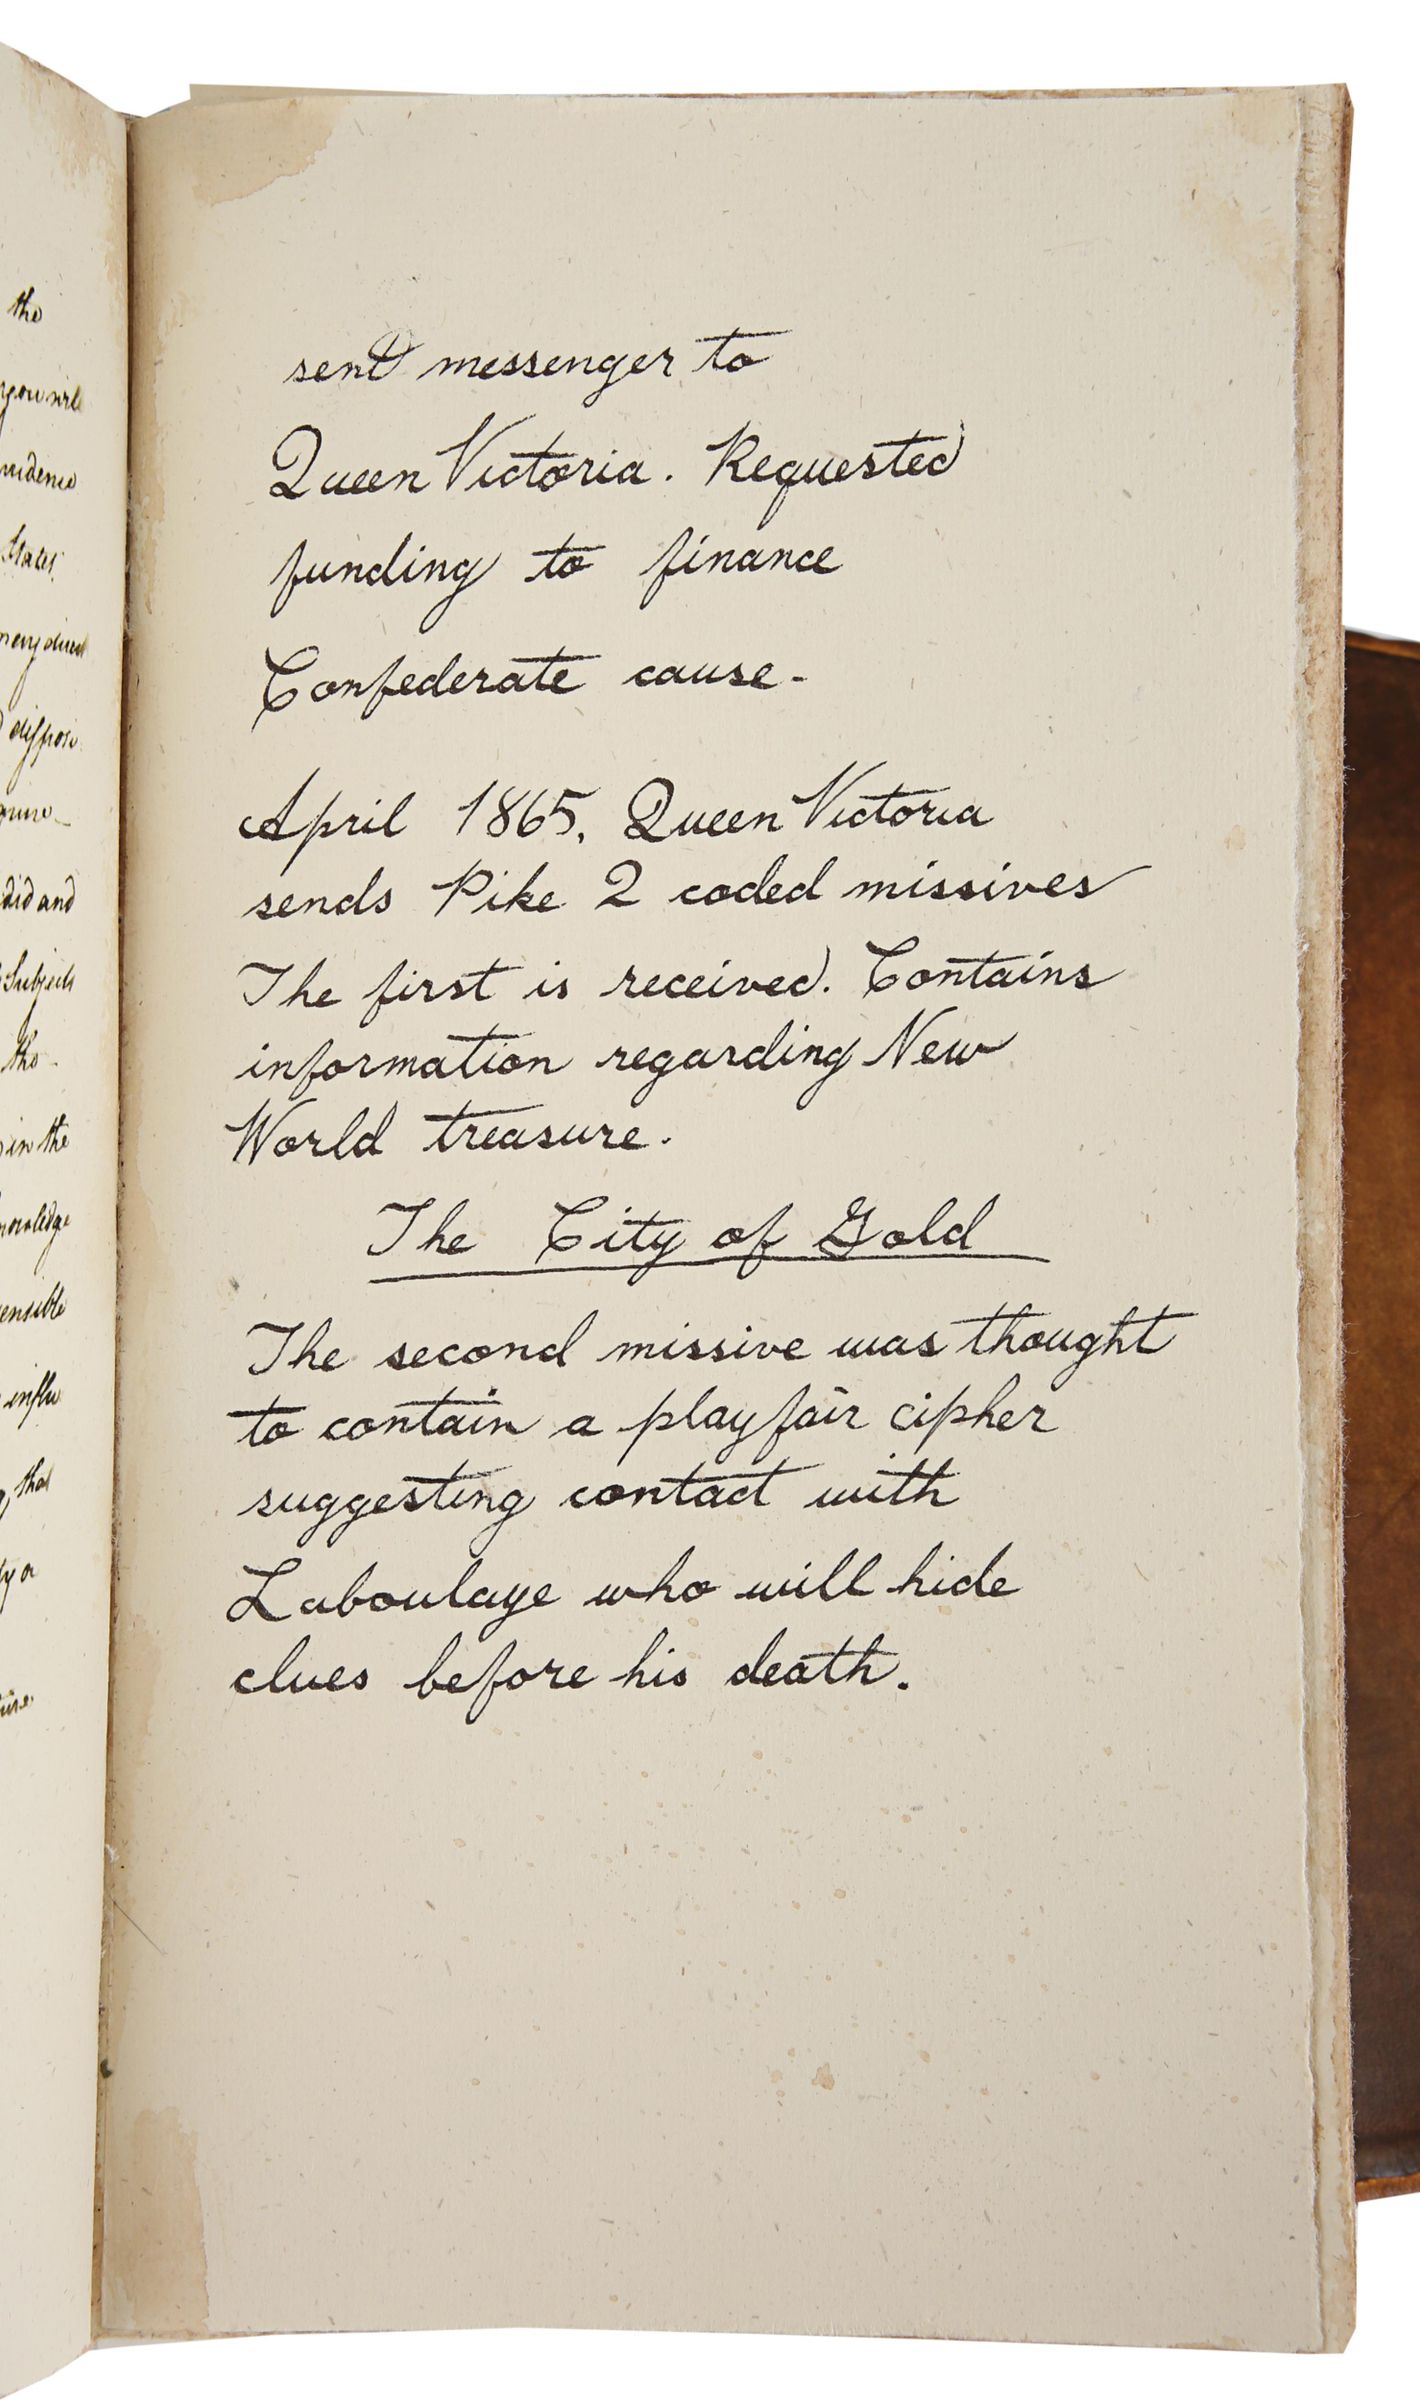 the
States
did and
Subjects
the
in the
ensible
influ
that
ty or
sent messenger to
Queen Victoria. Requested
funding to finance
Confederate cause.
April 1865, Queen Victoria
sends Pike 2 coded missives
The first is received. Contains
information regarding New
World treasure.
The City of Gold
The second missive was thought
to contain a playfair cipher
suggesting contact with
Laboulaye who will hide
clues before his death.